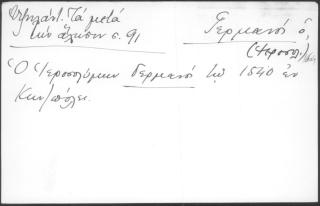 Ὑψηλάντ. Τὰ μετὰ
τὴν ἅλωσιν σ. 91
Γερμανὸς ὁ
(Ἱεροσολ.)
Ὁ Ἱεροσολύμων Γερμανὸς τῷ 1540 ἐν
Κων/πόλει.